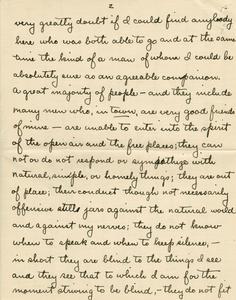 2
very greatly doubt if I could find anybody
here who was both able to go and at the same
time the kind of a man of whom I could be
absolutely sure as an agreeable companion.
A great majority of people – and they include
many men who, in town, are very good friends
of mine – are unable to enter into the spirit
of the open air and the free places; they can
not or do not respond or sympathize with
natural, simple, or homely things; they are out
of place; their conduct though not necessarily
offensive still jars against the natural world
and against my nerves; they do not know
when to speak and when to keep silence, –
in short they are blind to the things I see
and they see that to which I am for the
moment striving to be blind, – they do not fit